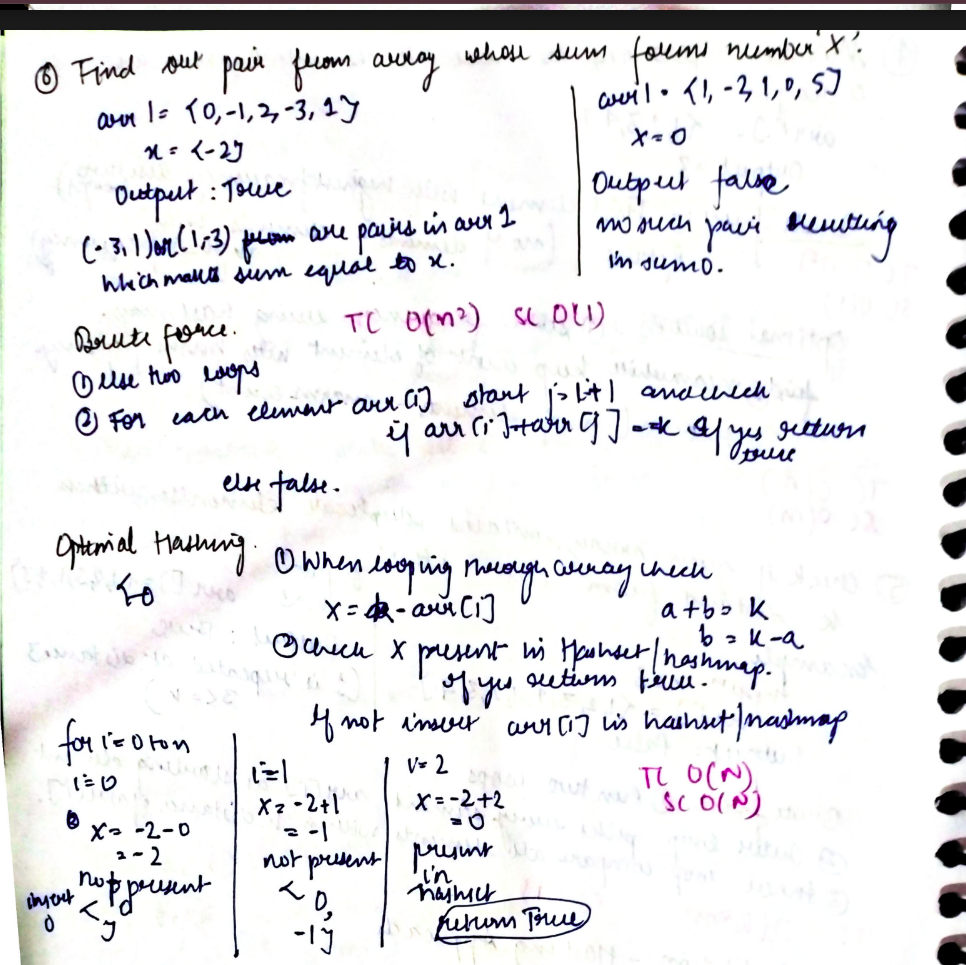 ⑥ Find out pair from array whose sum forms number 'X'.
arr 1 = {0,-1,2,-3,1}
x = {-2}
Output : True
(-3,1) or (1,-3) are pairs in arr 1
which makes sum equal to x.
arr 1 = {1,-2,1,0,5}
X=0
Output false
no such pair resulting
in sum 0.
Brute force. TC O(n²) SC O(1)
① Use two loops
② For each element arr[i] start j=i+1 and check
if arr[i]+arr[j] ==k If yes return
true
else false.
Optimal Hashing.
① When looping through array check
X = k - arr[i]
a+b = K
b = K-a
② Check X present in Hashset/hashmap.
If yes return true.
If not insert arr[i] is hashset/hashmap
TC O(N)
SC O(N)
for i=0 to n
i=0
X= -2-0
= -2
not present
insert
0
i=1
X= -2+1
= -1
not present
{ 0,
-1}
i= 2
X=-2+2
=0
present
in
hashset
return True